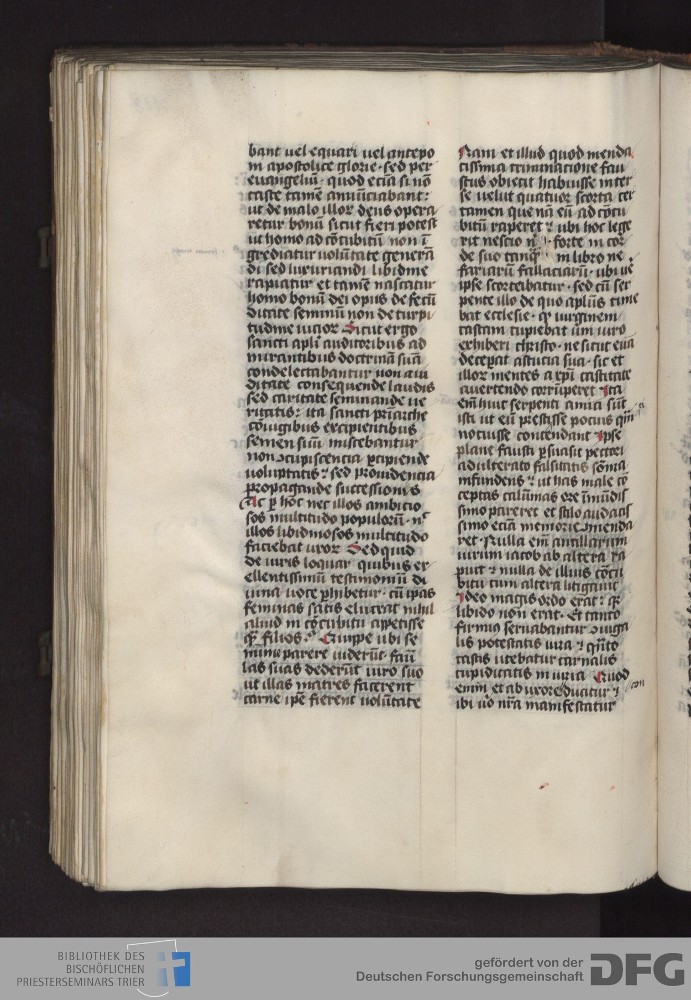 bant uel equari uel antepo
ni apostolice glorie · sed per
euangeliū · quod etiā si nō
caste tamē annūciabant :
ut de malo illoꝝ deus opera
retur bonū sicut fieri potest
ut homo ad cōcubitū non ī
grediatur uolūtate generā
di sed luxuriandi libidine
rapiatur et tamē nascatur
homo bonū dei opus de fecū
ditate seminū non de turpi
tudine Sicut ergo
sancti apli auditoribus ad
mirantibus doctrinā suā
condelectabantur non aui
ditate consequende laudis
sed caritate seminande ue
ritatis : ita sancti pr̄iarche
cōiugibus excipientibus
semen suū miscebantur
non ↄcupiscencia ꝑcipiende
uoluptatis ⁊ sed prouidencia
propagande successionis
Ac ꝑ hoc nec illos ambicio
sos multitudo populorū · nc̄
illos libidinosos multitudo
faciebat uxoꝝ Sed quid
de uiris loquar quibus ex
cellentissimū testimoniū di
uina uoce ꝑhibetur · cū ip̄as
feminas satis eluceat nihil
aliud in cōcubitu appetisse
qꝫ filios · Quippe ubi se
minime parere uiderūt · famu
las suas dederūt uiro suo
ut illas matres facerent
carne ip̄e fierent uolūtate
Nam et illud quod menda
cissima criminacione fau
stus obiecit habuisse inter
se uelut quatuor scorta cer
tamen que nā eū ad cōcu
bitū raperet ⁊ ubi hoc lege
rit nescio n · forte in cor
de suo tanqꝫ in libro ne
fariarū fallaciarū · ubi ue
ipse scortabatur · sed cū ser
pente illo de quo apl̄us time
bat ecclesie · qꝫ uirginem
castam cupiebat uni uiro
exhiberi christo · ne sicut eua
deceꝑat astucia sua · sic et
illoꝝ mentes a xp̄i castitate
auertendo corrūperet Ita
em̄ huic serpenti amici sūt
isti ut eū prestitisse pocius qm̄
nocuisse contendant Ipse
plane fausti ꝑsuasit pectori
adulterato falsitatis sēmina
infundens ⁊ ut has male cō
ceptas calūnias ore īmūdis
simo pareret et stilo audacis
simo etiā memorie ↄmenda
ret · Nulla em̄ ancillarum
uirum iacob ab altera ra
puit ⁊ nulla de illius cōcu
bitu cum altera litigauit
Ideo magis ordo erat : qꝫ
libido non erat · Et tanto
firmius seruabantur ↄiuga
lis potestatis iura ⁊ qn̄to
castius utebatur carnalis
cupiditatis iniuria Quod
enim et ab uxore ducitur ⁊
ibi uō nr̄a manifestatur
con
BIBLIOTHEK DES
BISCHÖFLICHEN
PRIESTERSEMINARS TRIER
gefördert von der
Deutschen Forschungsgemeinschaft
DFG